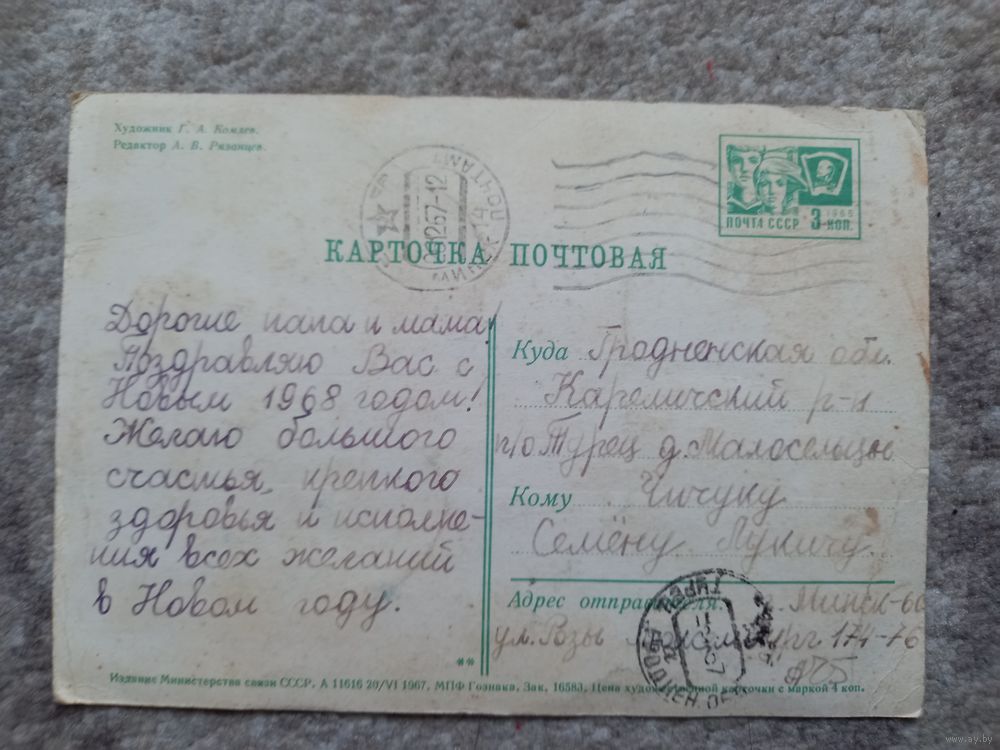 Художник Г. А. Комлев.
Редактор А. В. Рязанцев.
ПОЧТА СССР 3 КОП.
1965
МИНСК ПОЧТАМТ
1267-12
КАРТОЧКА ПОЧТОВАЯ
Дорогие папа и мама!
Поздравляю Вас с
Новым 1968 годом!
Желаю большого
счастья, крепкого
здоровья и исполне-
ния всех желаний
в Новом году.
Куда Гродненская обл.
Каремичский р-н
п/о Турец д. Малосельцы
Кому Чичуку
Семёну Лукичу.
Адрес отправителя: г. Минск-60
ул. Розы 174-76
ТУРЕЦ
**
Издание Министерства связи СССР. А 11616 20/VI 1967. МПФ Гознака. Зак. 16583. Цена художественной карточки с маркой 4 коп.
www.ay.by